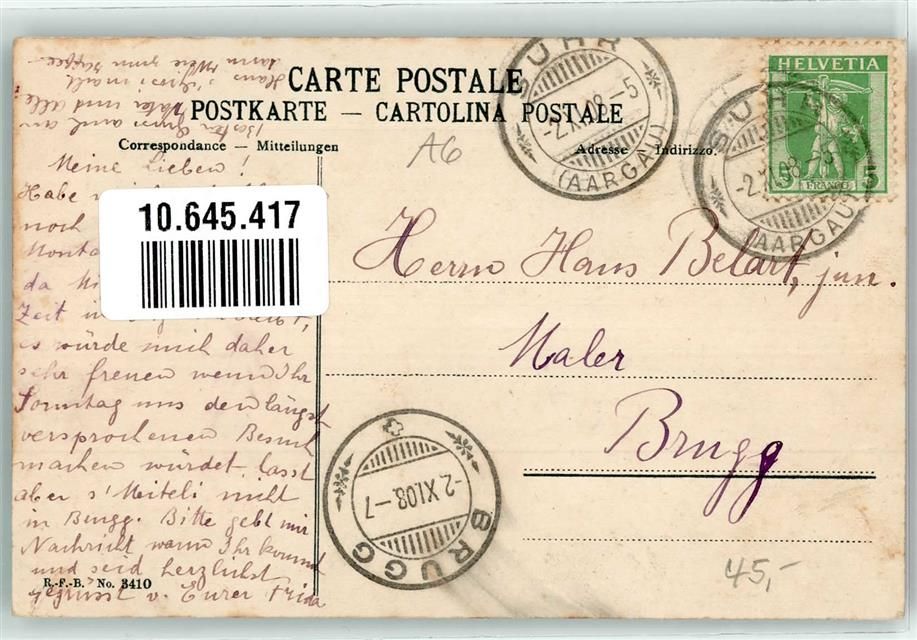 CARTE POSTALE
POSTKARTE — CARTOLINA POSTALE
Correspondance — Mitteilungen
Adresse — Indirizzo.
A6
SUHR
-2.XI.08.-5
(AARGAU)
HELVETIA
5 FRANCO 5
SUHR
-2.XI.08
(AARGAU)
10.645.417
Meine Lieben!
Habe
noch
Monta
da
Zeit in
es würde mich daher
sehr freuen wenn Ihr
Sonntag uns den längst
versprochenen Besuch
machen würdet, lasst
aber s'Meiteli nicht
in Brugg. Bitte gebt mir
Nachricht wann Ihr kommt
und seid herzlichst
gegrüsst v. Eurer Frida
Herrn Hans Belart, jun.
Maler
Brugg
BRUGG
-2.XI.08.-7
R.-F.-B. No. 3410
45,-